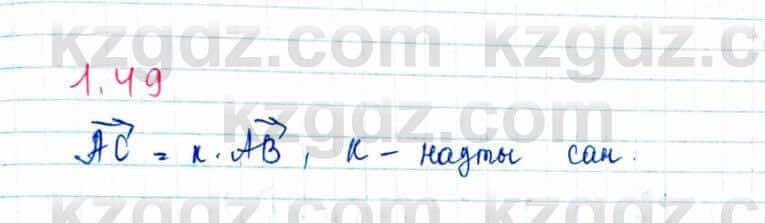 kzgdz.com kzgdz.co
1.49
kzgdz.com
AC = к. AB, к - нақты сан.
kzgdz.com kzgdz.co